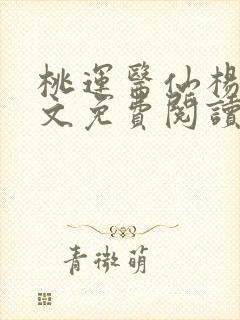 桃運醫仙楊
文免費閱讀
青微萌